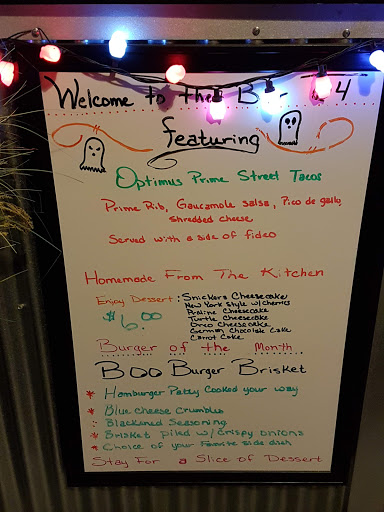 Welcome to the B 4
featuring
Optimus Prime Street Tacos
Prime Rib, Guacamole salsa, Pico de gallo,
shredded cheese
Served with a side of fideo
Homemade From The Kitchen
Enjoy Dessert: Snickers Cheesecake
New York Style w/cherries
Praline Cheesecake
$6.00 Turtle Cheesecake
Oreo Cheesecake
German Chocolate Cake
Carrot Cake
Burger of the Month
Boo Burger Brisket
* Hamburger Patty Cooked your way
* Blue cheese Crumbles
: Blackened Seasoning
* Brisket piled w/ crispy onions
* Choice of your favorite side dish
Stay For a Slice of Dessert